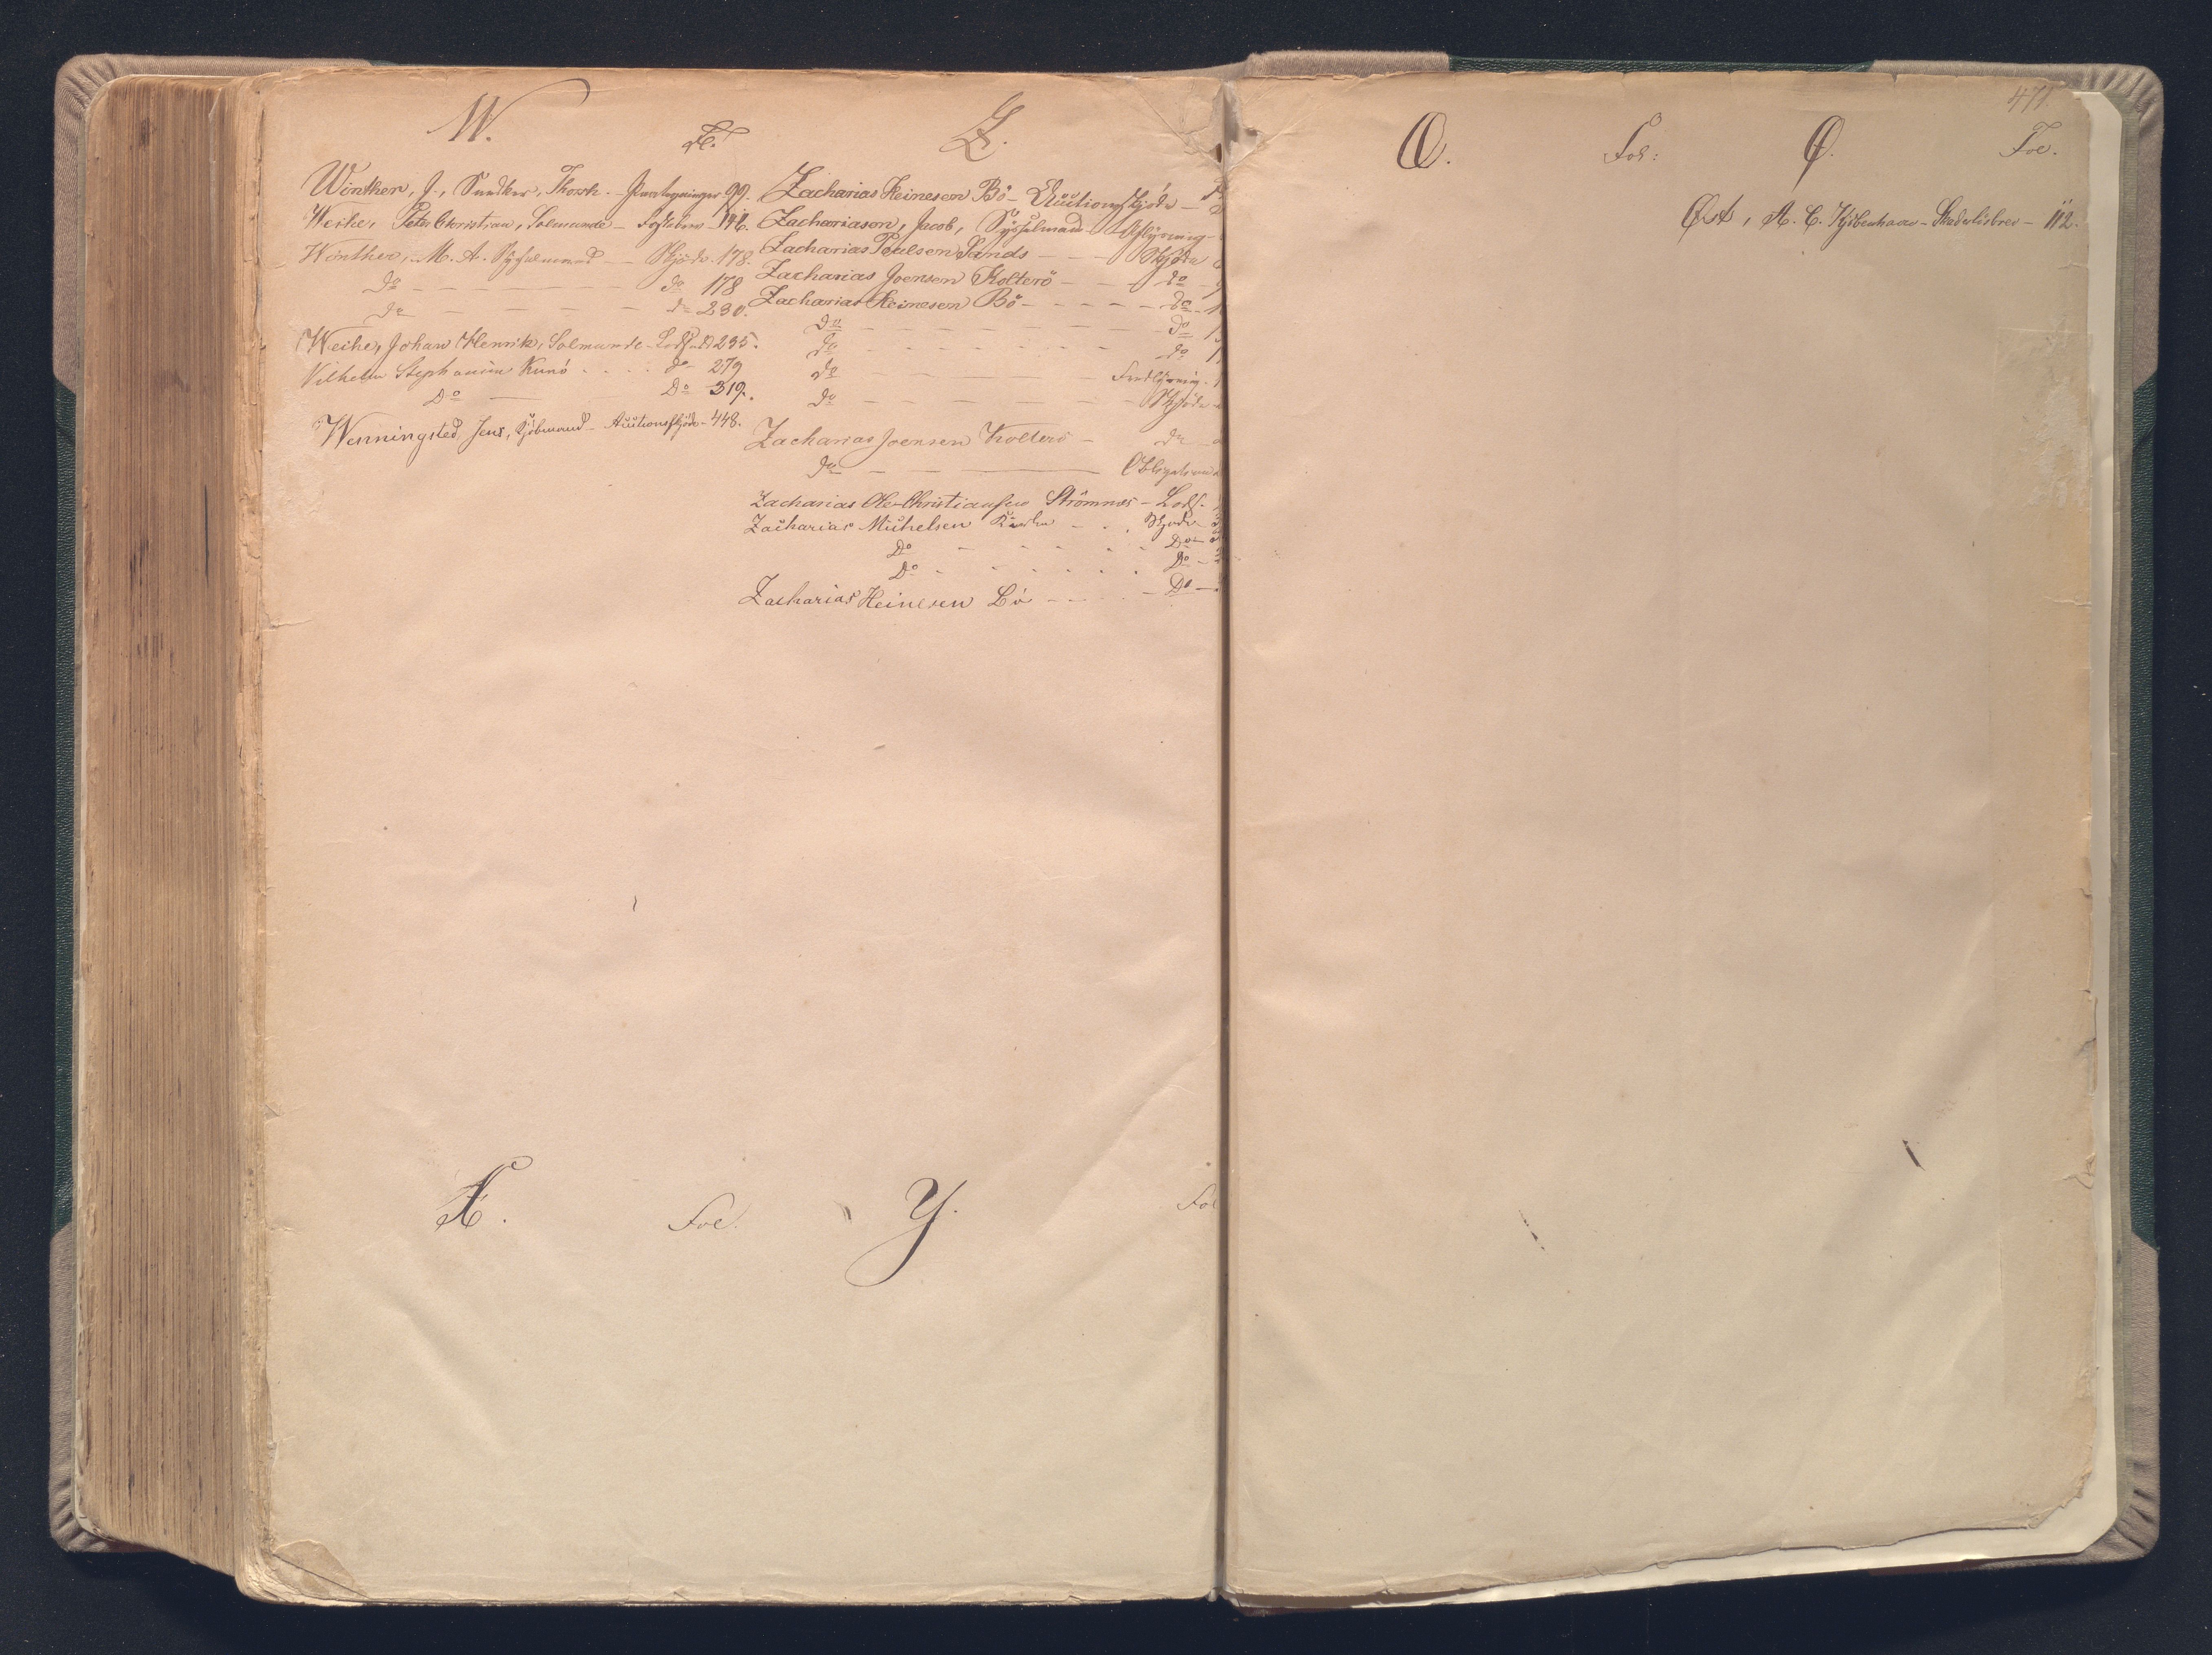 W.
Fol.
Winther, J., Snedker, Thorsh. - 99.
Weihe, Peter Christian, Solmunde - Festebrev - 146.
Winther, M. A. Sysselmand - Skjöde 178.
do - do 178
do - do 230.
Weihe, Johan Henrik, Solmunde - 235.
Vilhelm Stephanien Kunö . . . . do - 279
Do - Do 319.
Wenningsted, Jens, Kjöbmand - Auctionsskjöde - 448.
Z.
Zacharias Heinesen Bö - Auctionsskjöde -
Zachariason, Jacob, Sysselmand - Aflysning -
Zacharias Poulsen Sands - - - Skjöde
Zacharias Joensen Kolterö - - - do -
Zacharias Heinesen Bö - - - - - do -
do - - - - - - do
do - - - - - - do
do - -
do - - - - - Skjöde
Zacharias Joensen Kolterö - do -
do - - - Obligation
Zacharias Ole Christiansen Strömnæs -
Zacharias Michelsen - . . Skjöde -
Do - . . . . . Do -
Do . . . . . . Do -
Zacharias Heinesen Bö - - - Do -
X.
Fol.
Y.
Fol
471
Q.
Fol:
Ø.
Fol.
Øst, A. C. Kjöbenhavn - Skadeslösbrev - 112.